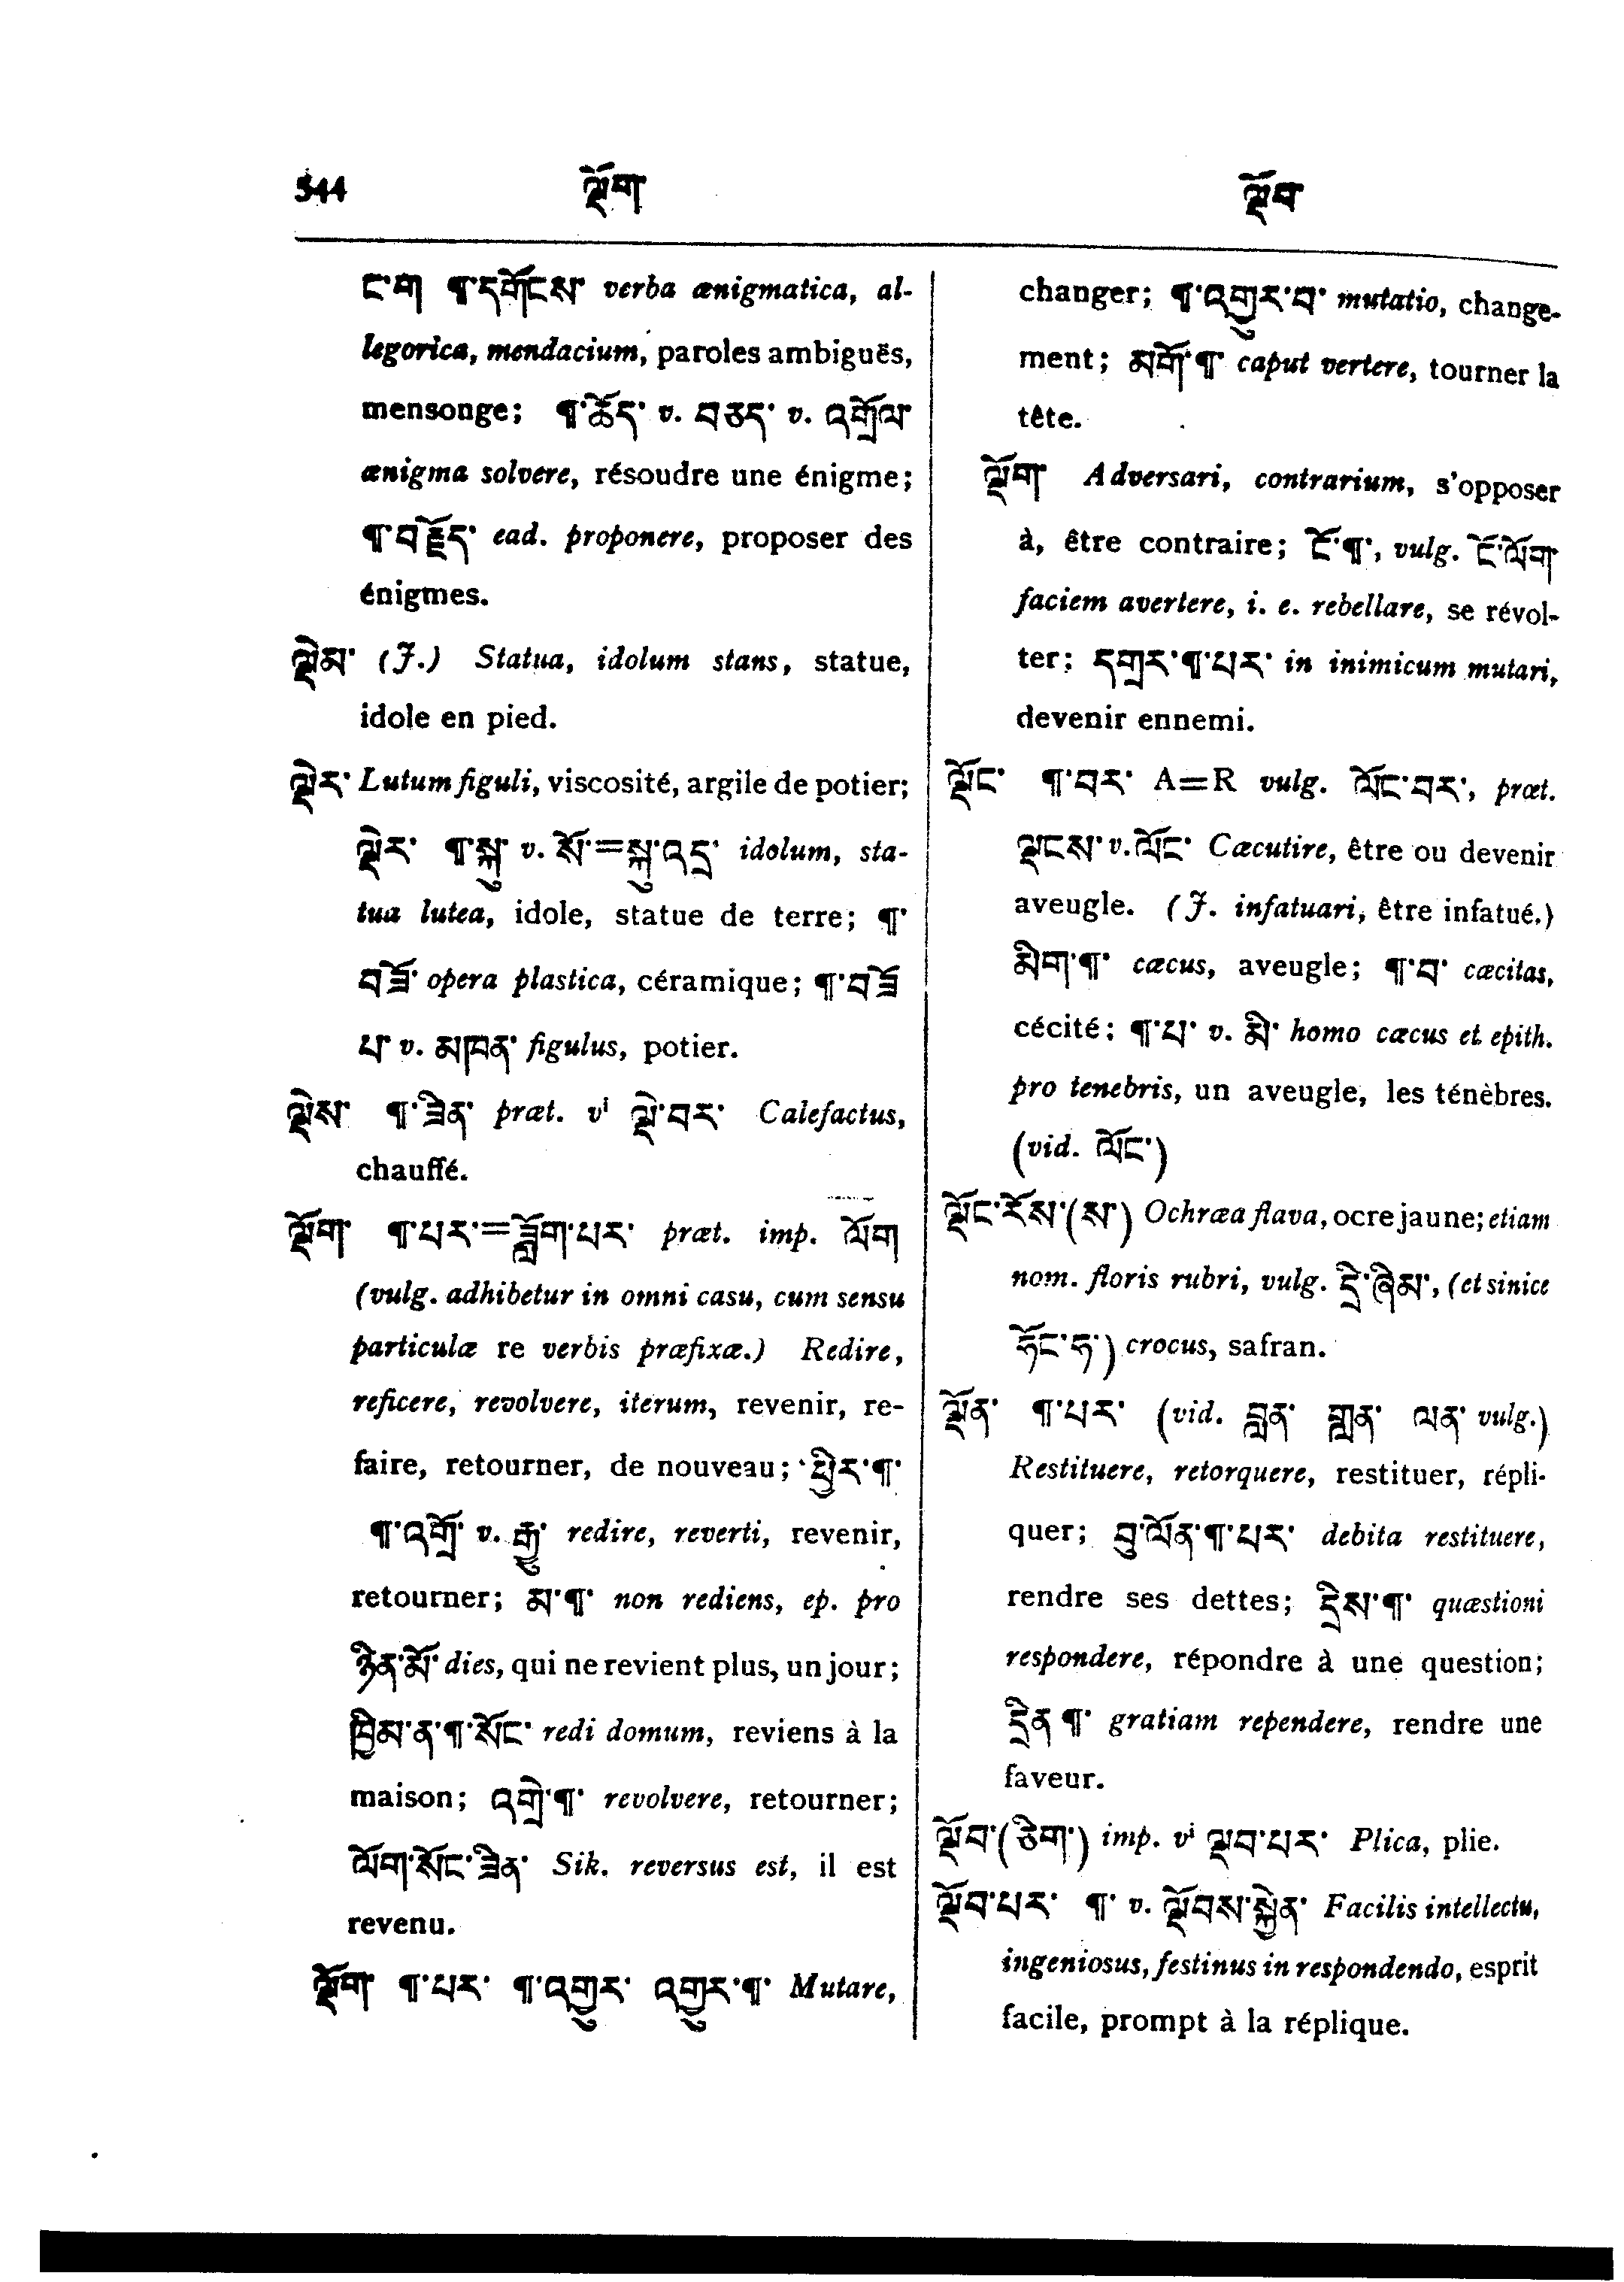 344 ལྡོག ལྡོབ
ང་ག ¶་དགོངས་ verba ænigmatica, al-
legorica, mendacium, paroles ambiguës,
mensonge; ¶་ཚོད་ v. བཅད་ v. འགྲོལ་
ænigma solvere, résoudre une énigme;
¶་བརྗོད་ ead. proponere, proposer des
énigmes.
ལྡེམ་ (J.) Statua, idolum stans, statue,
idole en pied.
ལྡེར་ Lutum figuli, viscosité, argile de potier;
ལྡེར་ ¶་སྐུ་ v. སོ་=སྐུ་འདྲ་ idolum, sta-
tua lutea, idole, statue de terre; ¶་
བཟོ་ opera plastica, céramique; ¶་བཟོ
པ་ v. མཁན་ figulus, potier.
ལྡེས་ ¶་ཟིན་ præt. vi ལྡེ་བར་ Calefactus,
chauffé.
ལྡོག་ ¶་པར་=ཟློག་པར་ præt. imp. ལོག
(vulg. adhibetur in omni casu, cum sensu
particulæ re verbis præfixæ.) Redire,
reficere, revolvere, iterum, revenir, re-
faire, retourner, de nouveau; ཕྱིར་¶་
¶་འགྲོ་ v. རྒྱུ་ redire, reverti, revenir,
retourner; མ་¶་ non rediens, ep. pro
ཉིན་མོ་ dies, qui ne revient plus, un jour;
ཁྱིམ་ན་¶་སོང་ redi domum, reviens à la
maison; འགྲེ་¶་ revolvere, retourner;
ལོག་སོང་ཟིན་ Sik. reversus est, il est
revenu.
ལྡོག་ ¶་པར་ ¶་འགྱུར་ འགྱུར་¶་ Mutare,
changer; ¶་འགྱུར་བ་ mutatio, change-
ment; མགོ་¶་ caput vertere, tourner la
tête.
ལྡོག་ Adversari, contrarium, s'opposer
à, être contraire; ངོ་¶་, vulg. ངོ་ལོག
faciem avertere, i. e. rebellare, se révol-
ter; དགྲར་¶་པར་ in inimicum mutari,
devenir ennemi.
ལྡོང་ ¶་བར་ A=R vulg. ལོང་བར་, præt.
ལྡངས་ v. ལོང་ Cæcutire, être ou devenir
aveugle. (J. infatuari, être infatué.)
མིག་¶་ cæcus, aveugle; ¶་བ་ cæcitas,
cécité; ¶་པ་ v. མི་ homo cæcus et epith.
pro tenebris, un aveugle, les ténèbres.
(vid. ལོང་)
ལྡོང་རོས་(ས་) Ochræa flava, ocre jaune; etiam
nom. floris rubri, vulg. དྲི་ཞིམ་, (et sinice
ཧོང་ཧ་) crocus, safran.
ལྡོན་ ¶་པར་ (vid. བླན་ གླན་ ལན་ vulg.)
Restituere, retorquere, restituer, répli-
quer; བུ་ལོན་¶་པར་ debita restituere,
rendre ses dettes; དྲིས་¶་ quæstioni
respondere, répondre à une question;
དྲིན་¶་ gratiam rependere, rendre une
faveur.
ལྡོབ་(ཅིག་) imp. vi ལྡབ་པར་ Plica, plie.
ལྡོབ་པར་ ¶་ v. ལྡོབས་སྐྱེན་ Facilis intellectu,
ingeniosus, festinus in respondendo, esprit
facile, prompt à la réplique.